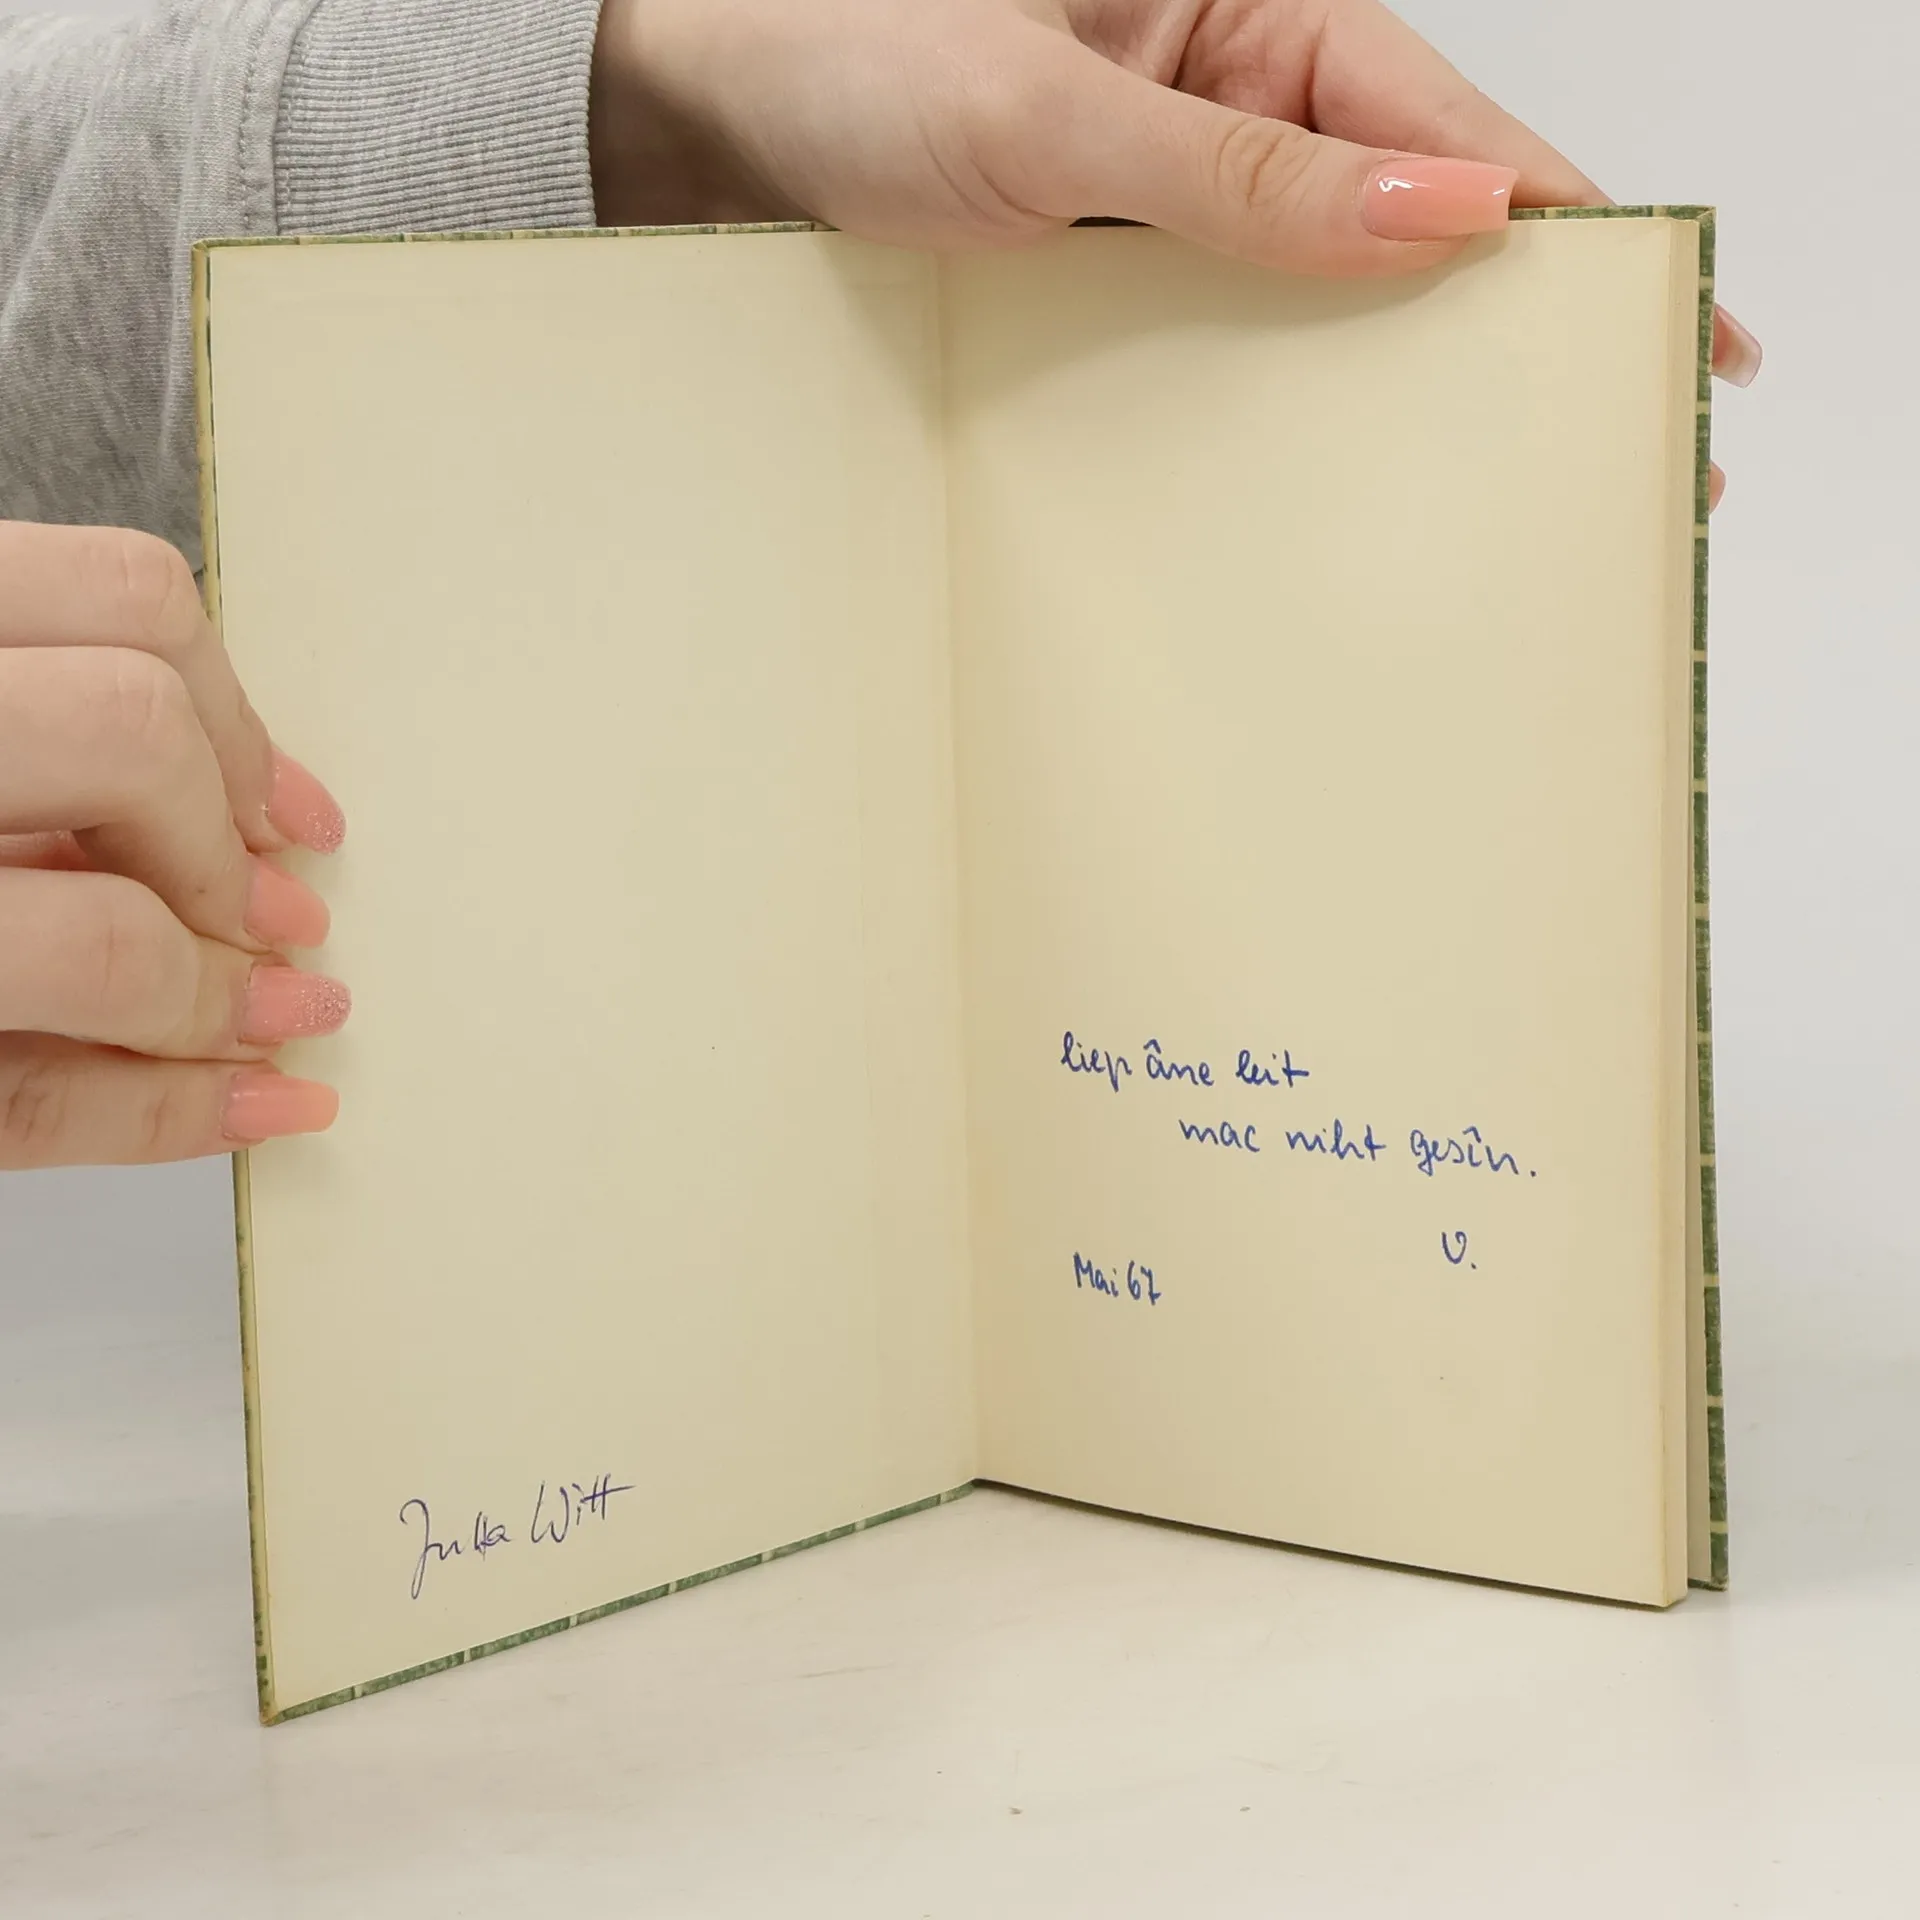 Jutta Witt
liep âne leit
mac niht gesîn.
V.
Mai 67